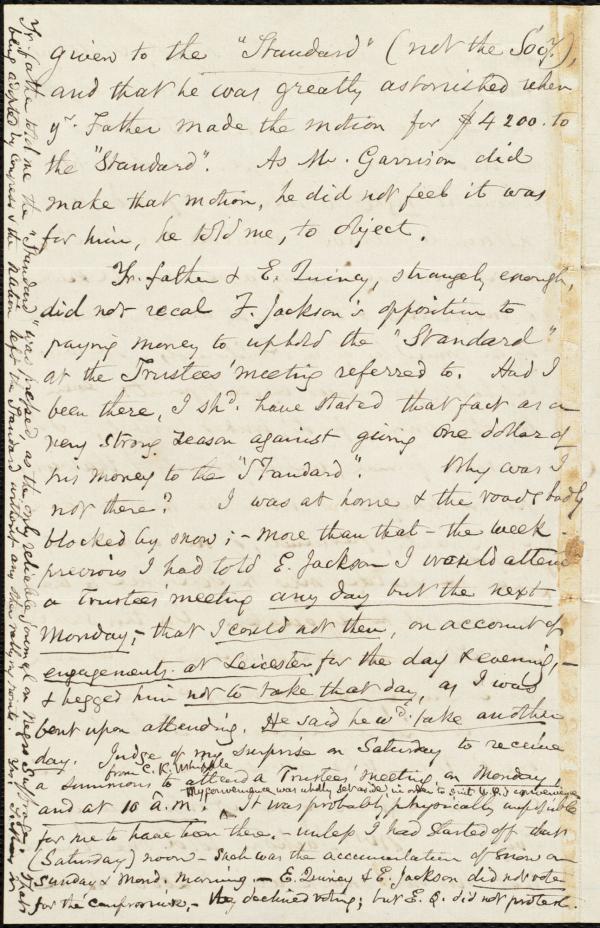 given to the "Standard" (not the Socy.),
and that he was greatly astonished when
yr. Father made the motion for $4200. to
the "Standard". As Mr. Garrison did
make that motion, he did not feel it was
for him, he told me, to object.
Yr. father & E. Quincy, strangely enough,
did not recal F. Jackson's opposition to
paying money to uphold the "Standard"
at the Trustees' meeting referred to. Had I
been there, I shd. have stated that fact as a
very strong reason against giving one dollar of
his money to the "Standard". Why was I
not there? I was at home & the roads badly
blocked by snow; - more than that - the week
previous I had told E. Jackson I would attend
a Trustees' meeting any day but the next
Monday; - that I could not then, on account of
engagements at Leicester for the day & evening, -
& begged him not to take that day, as I was
bent upon attending. He said he wd. take another
day. Judge of my surprise on Saturday to receive
from C. K. Whipple
a summons to attend a Trustees' meeting on Monday,
My convenience was wholly set aside, in order to suit W. P.'s convenience
and at 10 a.m. ^ It was probably physically impossible
for me to have been there, - unless I had started off that
(Saturday) noon - such was the accumulation of snow on
Sunday & Mond. morning. - E. Quincy & E. Jackson did not vote
for the compromise, - they declined voting; but E. Q. did not protest.
Yr. father told me the "Standard" was propped, as the only reliable journal on Negro Suffrage. That
being adopted by Congress & the nation left the Standard without any other rallying point. Yr.